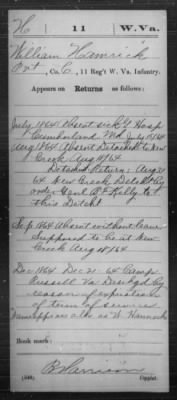 H | 11 | W.Va.
William Hamrick
Pvt, Co. C, 11 Reg't W. Va. Infantry.
Appears on Returns as follows:
July 1864 Absent sick G Hosp
Cumberland Md July 1864
Aug 1864 Absent Detached to New
Creek Aug 4/64
Detachd Return: Aug 31
64 New Creek Detachd by
order Genl B F Kelly to
this Detcht
Sep 1864 Absent without leave
Supposed to be at New
Creek Aug 4/64
Dec 1864 Dec 31 64 Camp
Russell Va Dischgd by
reason of expiration
of term of service
Name appears also as W
Book mark:
(546) Copyist.